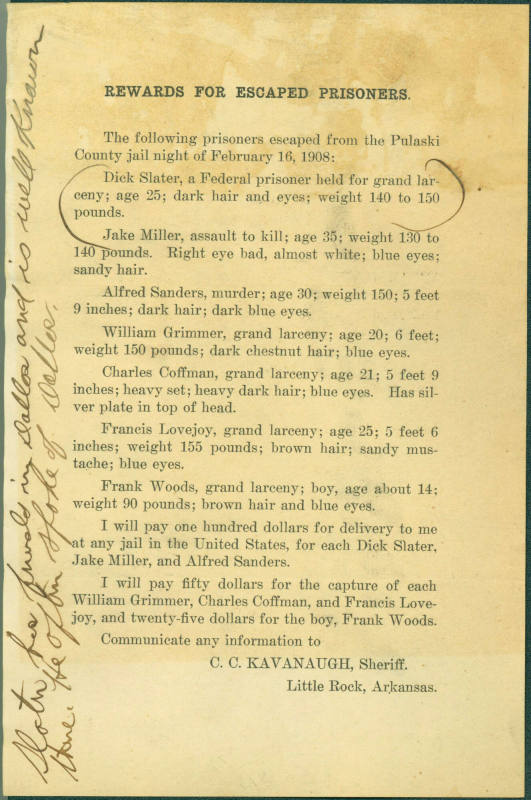 REWARDS FOR ESCAPED PRISONERS.
The following prisoners escaped from the Pulaski
County jail night of February 16, 1908:
Dick Slater, a Federal prisoner held for grand lar-
ceny; age 25; dark hair and eyes; weight 140 to 150
pounds.
Jake Miller, assault to kill; age 35; weight 130 to
140 pounds. Right eye bad, almost white; blue eyes;
sandy hair.
Alfred Sanders, murder; age 30; weight 150; 5 feet
9 inches; dark hair; dark blue eyes.
William Grimmer, grand larceny; age 20; 6 feet;
weight 150 pounds; dark chestnut hair; blue eyes.
Charles Coffman, grand larceny; age 21; 5 feet 9
inches; heavy set; heavy dark hair; blue eyes. Has sil-
ver plate in top of head.
Francis Lovejoy, grand larceny; age 25; 5 feet 6
inches; weight 155 pounds; brown hair; sandy mus-
tache; blue eyes.
Frank Woods, grand larceny; boy, age about 14;
weight 90 pounds; brown hair and blue eyes.
I will pay one hundred dollars for delivery to me
at any jail in the United States, for each Dick Slater,
Jake Miller, and Alfred Sanders.
I will pay fifty dollars for the capture of each
William Grimmer, Charles Coffman, and Francis Love-
joy, and twenty-five dollars for the boy, Frank Woods.
Communicate any information to
C. C. KAVANAUGH, Sheriff.
Little Rock, Arkansas.
has friends in Dallas and is well Known
there. He often spoke of Dallas.